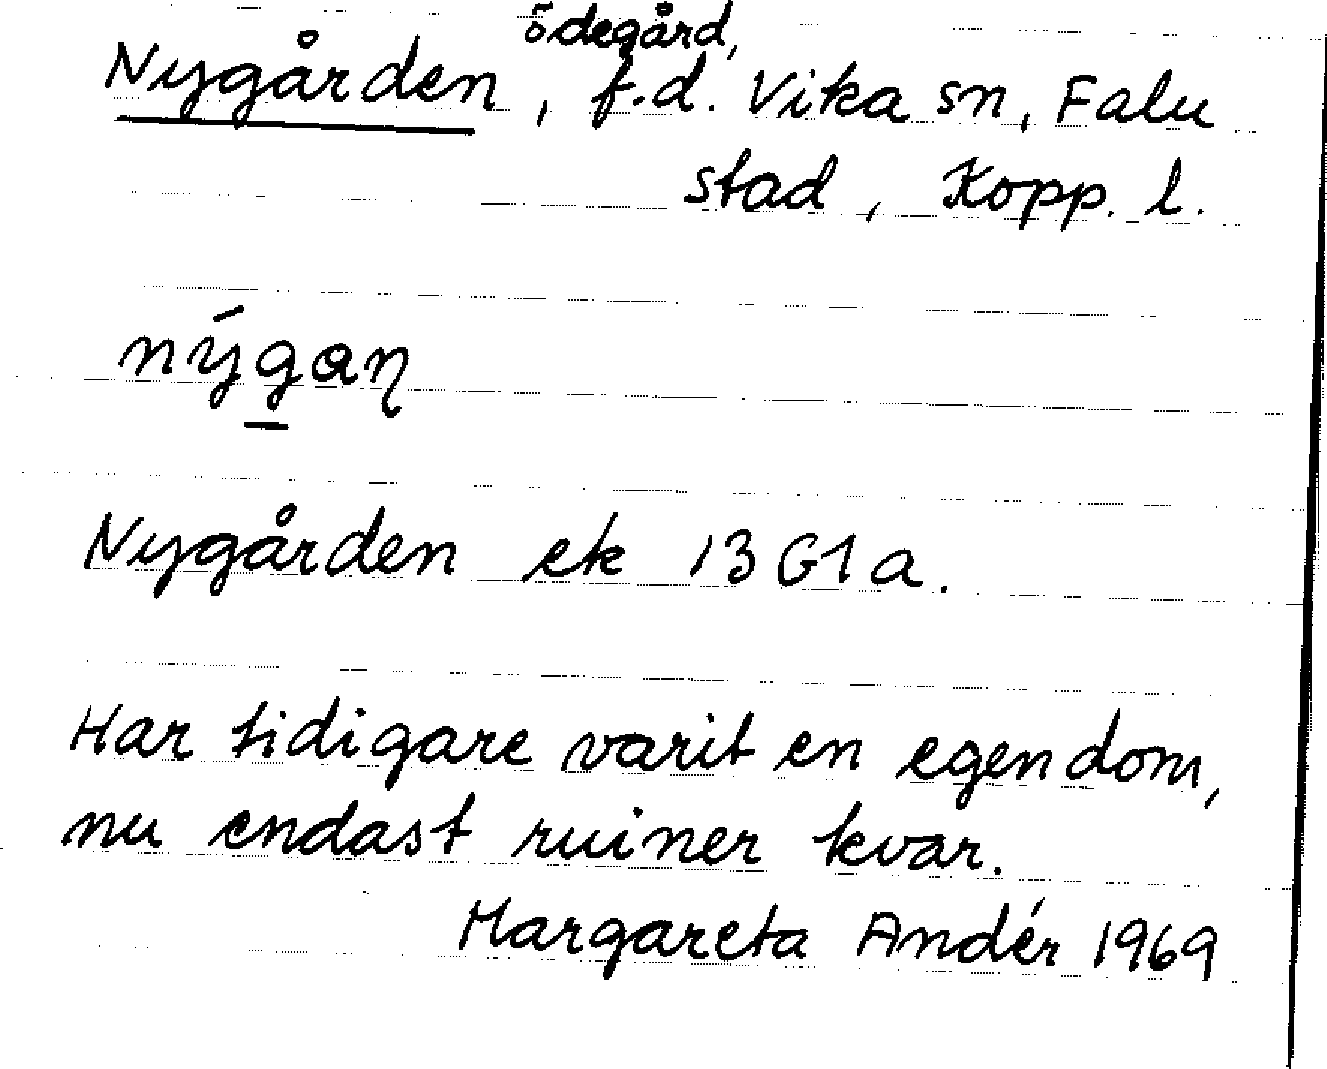 ödegård,
Nygården, f.d. Vika sn, Falu
stad, Kopp. l.
nýgaɳ
Nygården ek 13 G1a.
Har tidigare varit en egendom,
nu endast ruiner kvar.
Margareta Andér 1969